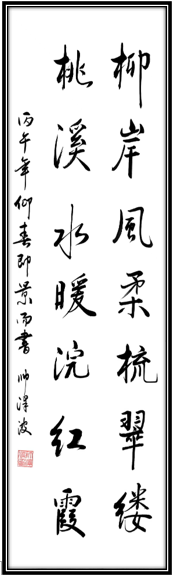 柳岸風柔梳翠缕
桃溪水暖浣红霞
丙午年仰春即景而书 帅泽波